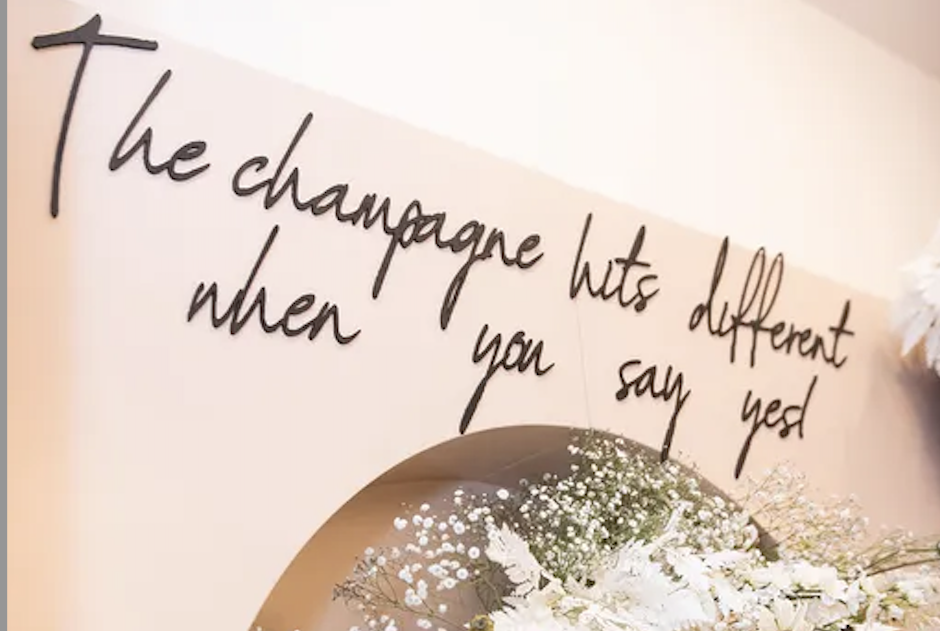 The champagne hits different
when you say yes!